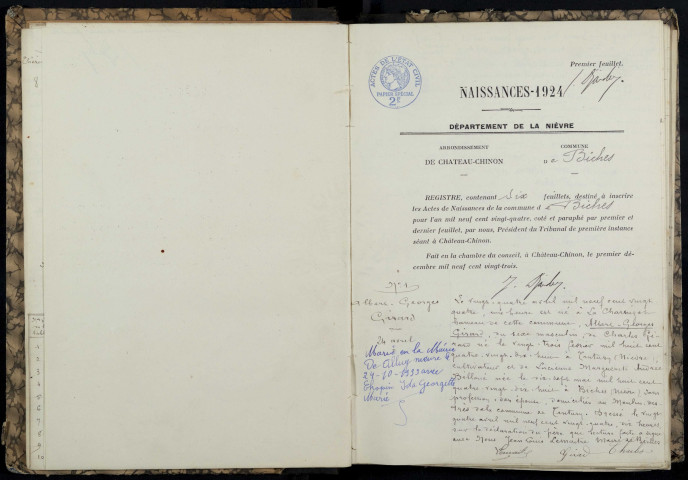 ACTES DE L'ÉTAT CIVIL
PAPIER SPÉCIAL
2F
Premier feuillet.
NAISSANCES-1924
DÉPARTEMENT DE LA NIÈVRE
ARRONDISSEMENT
DE CHATEAU-CHINON
COMMUNE
de Biches
REGISTRE, contenant Six feuillets, destiné à inscrire
les Actes de Naissances de la commune de Biches
pour l'an mil neuf cent vingt-quatre, coté et paraphé par premier et
dernier feuillet, par nous, Président du Tribunal de première instance
séant à Château-Chinon.
Fait en la chambre du conseil, à Château-Chinon, le premier dé-
cembre mil neuf cent vingt-trois.
N° 1
Georges
Girard
24 avril
Marié en la Mairie
De
24-10-1953 avec
Chopin Ida Georgette
Marie
Le vingt-quatre avril mil neuf cent vingt
quatre, heures est né à
hameau de cette commune, Georges
Girard, du sexe masculin, de Charles Gi-
rard né le vingt-trois février mil huit cent
quatre-vingt-dix-huit à Tintury, Nièvre,
cultivateur et de Lucienne Marguerite
née le vingt-sept mai mil huit cent
quatre-vingt-dix-huit à Biches, Nièvre, sans
profession, son épouse, domiciliés au Moulin
commune de Tintury. Dressé le vingt-
quatre avril mil neuf cent vingt-quatre, heures
sur la déclaration du père qui, lecture faite a signé
avec Nous Jean Louis Maire de Biches
Girard Charles